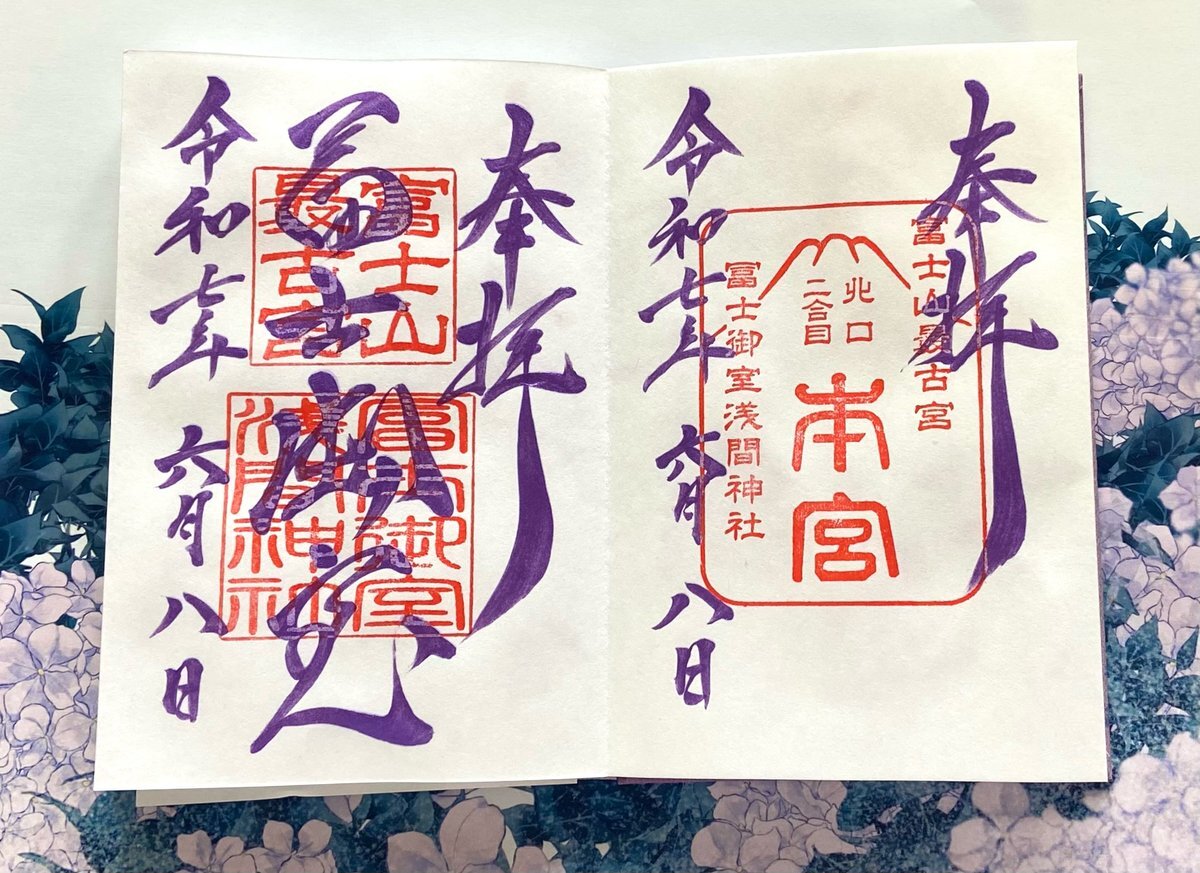 奉拝
富士山最古宮
北口
二合目
本宮
冨士御室浅間神社
令和七年六月八日
奉拝
富士山
最古宮
冨士御室
浅間神社
令和七年六月八日